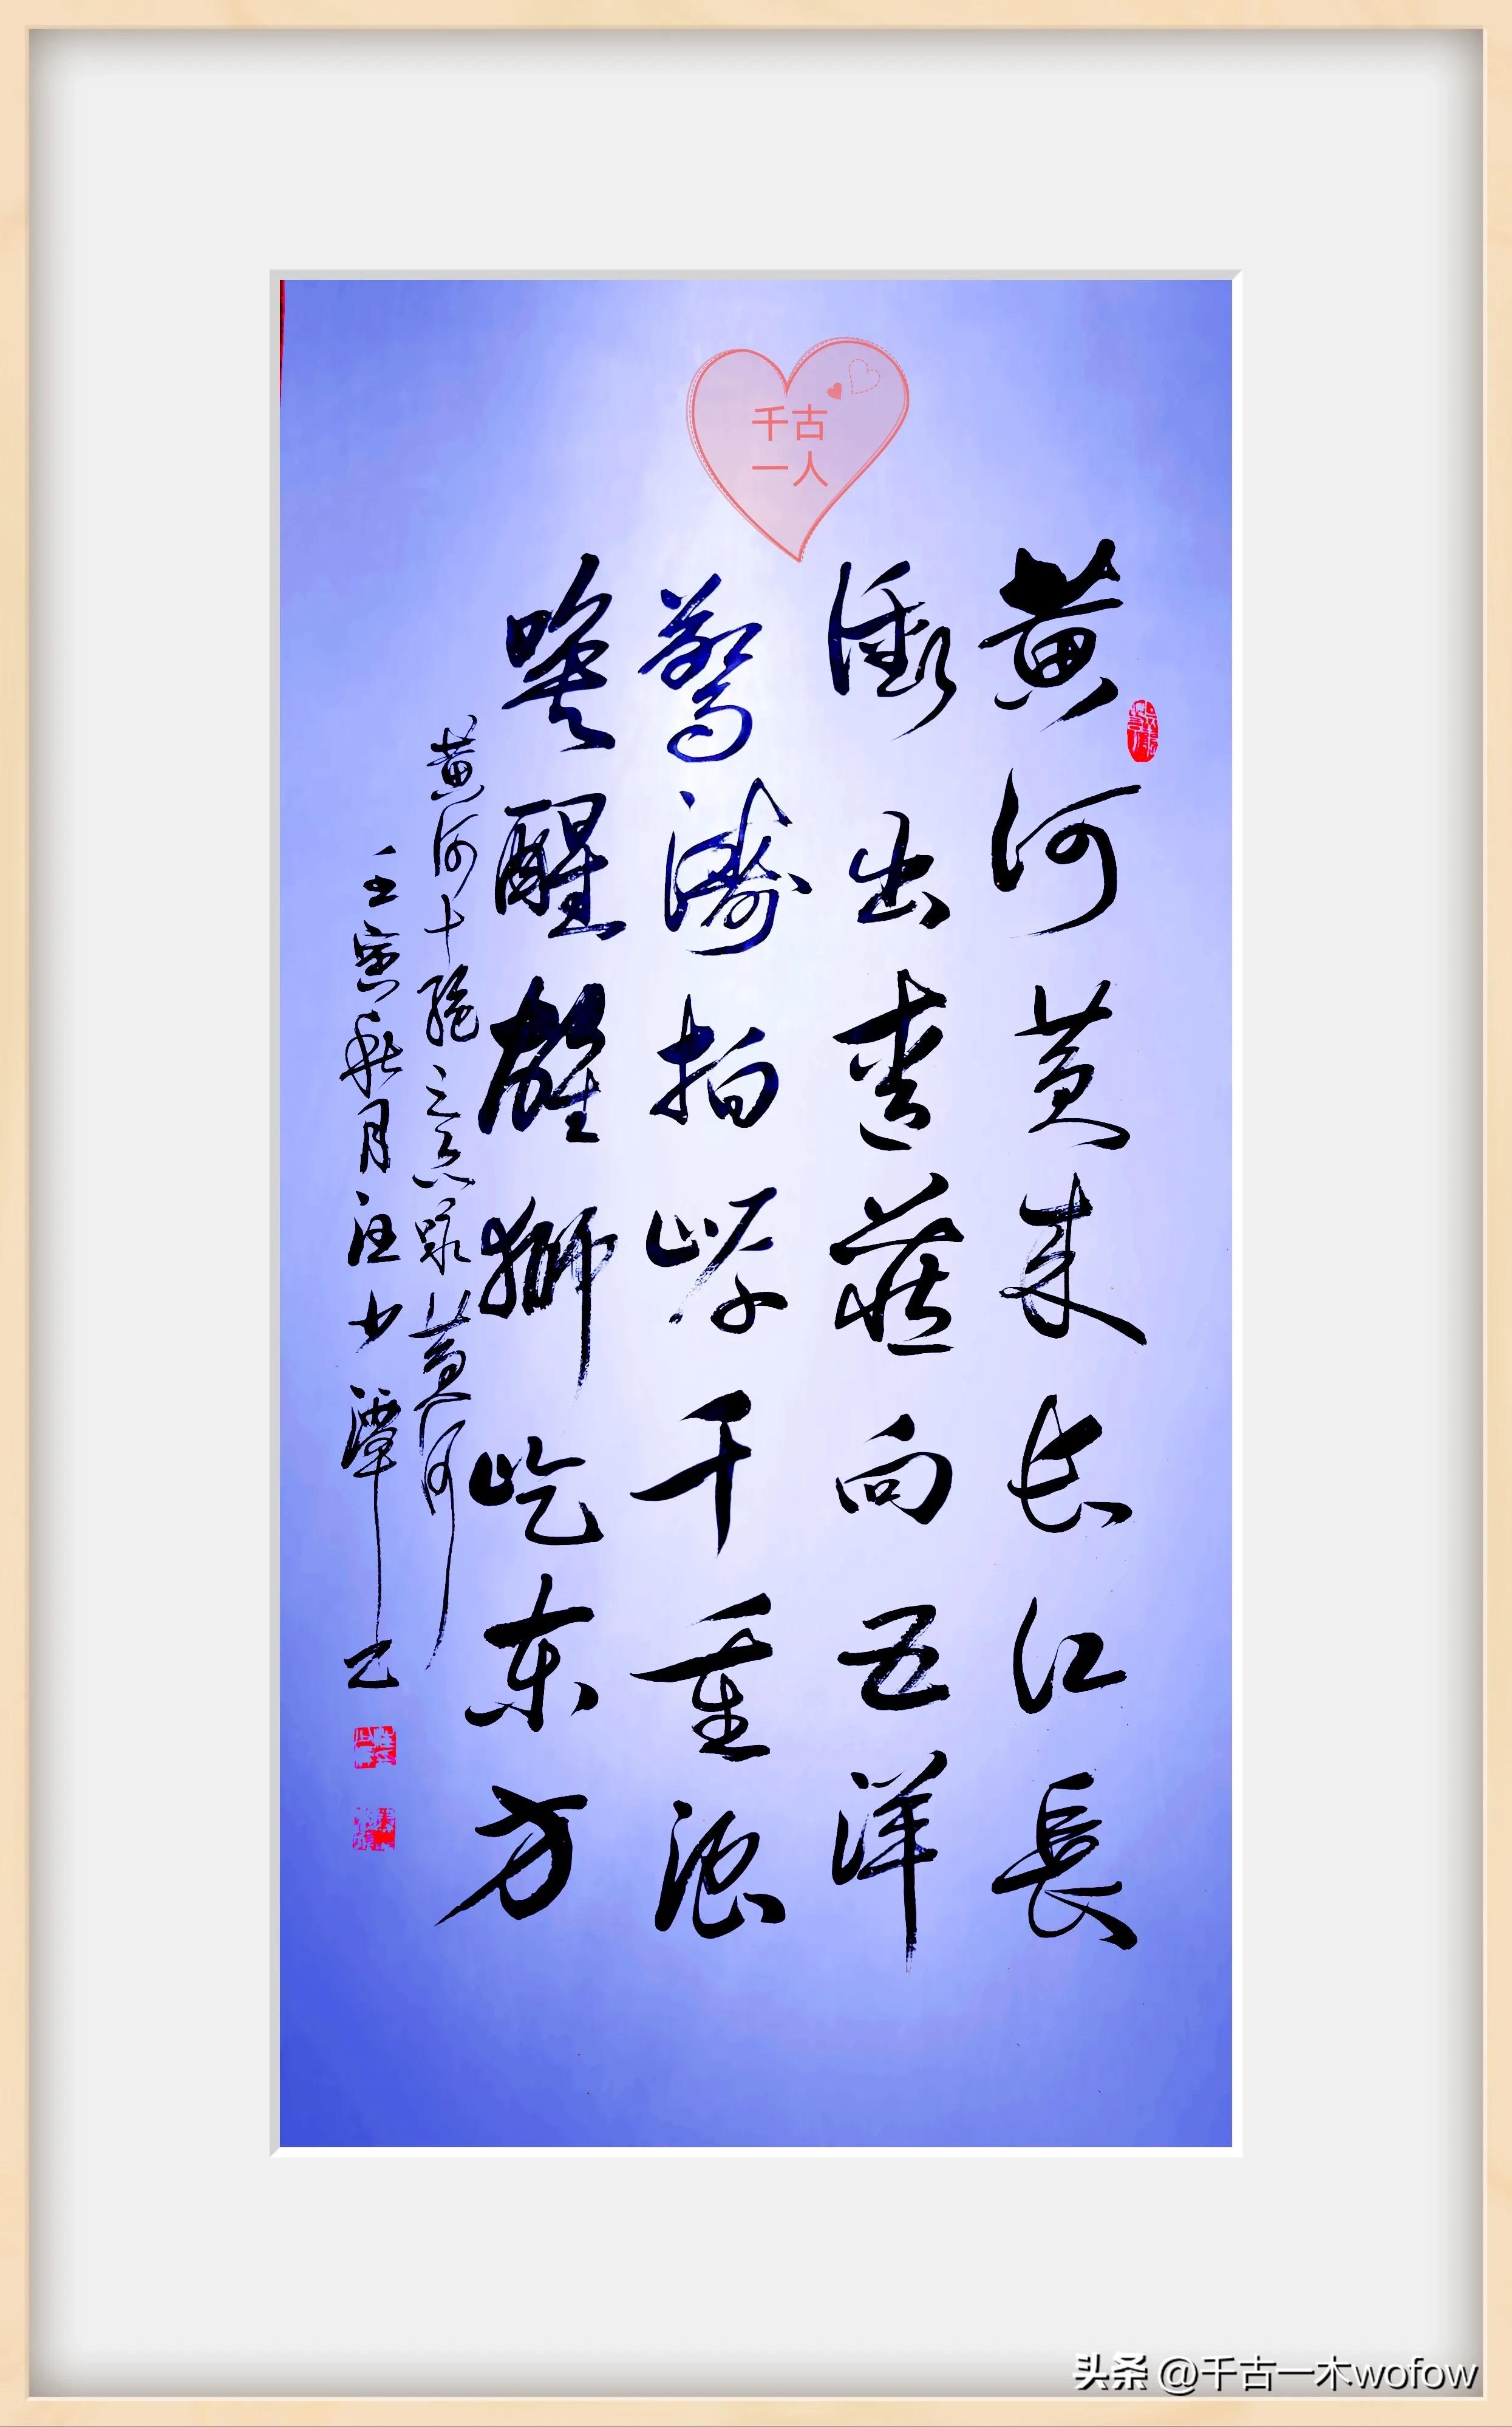 千古
一人
黄河黄来长江長
衝出青藏向五洋
驚濤拍岸千重浪
唤醒雄獅屹东方
黄河十绝之六咏黄河
壬寅秋月汪少潭书
头条 @千古一木wofow